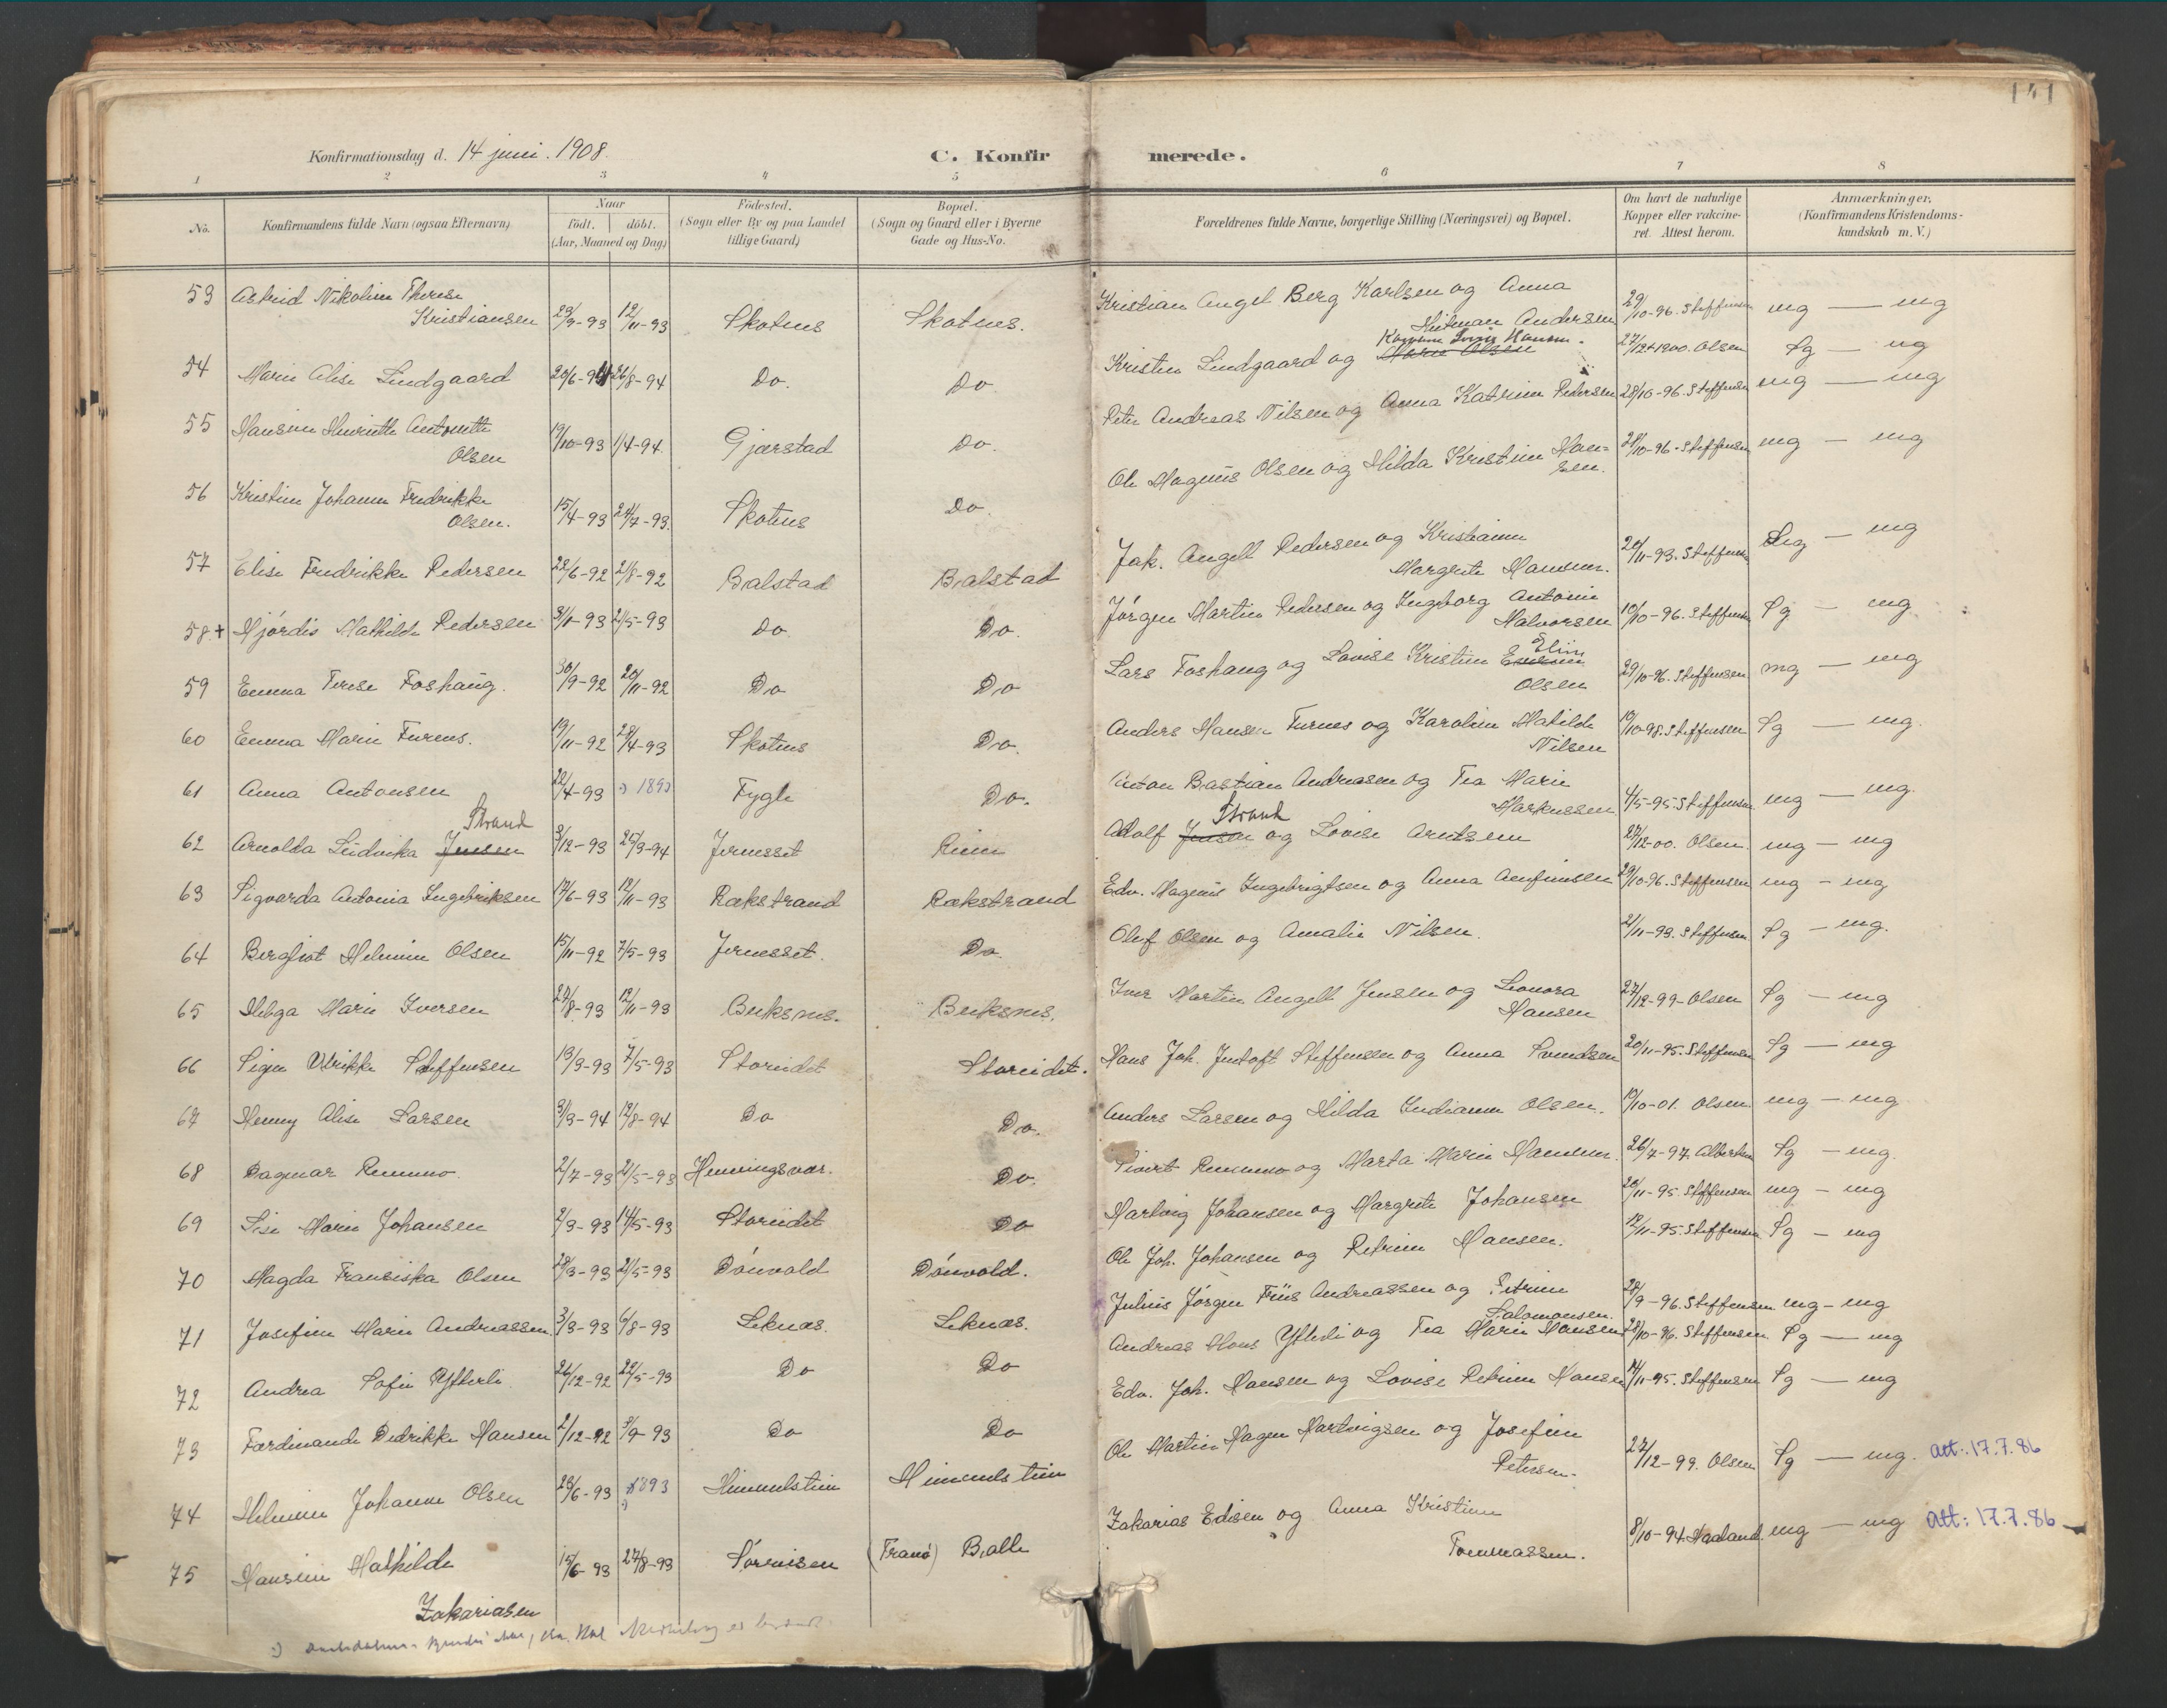 141
Konfirmationsdag d. 14 juni. 1908.
C. Konfirmerede.
1 2 3 4 5 6 7 8
No.
Konfirmandens fulde Navn (ogsaa Efternavn)
Naar
født. døbt.
(Aar, Maaned og Dag)
Fødested.
(Sogn eller By og paa Landet
tillige Gaard)
Bopæl.
(Sogn og Gaard eller i Byerne
Gade og Hus-No.
Forældrenes fulde Navne, borgerlige Stilling (Næringsvei) og Bopæl.
Om havt de naturlige
Kopper eller vakcine-
ret. Attest herom.
Anmærkninger.
(Konfirmandens Kristendoms-
kundskab m. V.)
53 Astrid Nikoline Therese Kristiansen 12/11-93 Skotnes Skotnes. Kristian Angel Berg Karlsen og Anna Andersen 29/10-96. Steffensen mg — mg
54 Marie Alise Lindgaard 26/8-94 Do. Do Kristen Lindgaard og Marie Olsen 27/12 1900. Olsen Sg — mg
55 Hansine Henriette Antonette Olsen 19/10-93 1/4-94 Gjærstad Do. Peter Andreas Nilsen og Anna Katrine Pedersen 28/10-96. Steffensen mg — mg
56 Kristine Johanne Fredrikke Olsen. 15/4-93 Skotnes Do. Ole Magnus Olsen og Hilda Kristine Hansen. 28/10-96. Steffensen mg — mg
57 Elise Fredrikke Pedersen 22/6-92 21/8-92 Balstad Balstad Jak. Angell Pedersen og Kristianne Margrete Hansen. 20/11-93. Steffensen Sg — mg
58.+ Hjørdis Mathilde Pedersen 21/5-93 Do. Do. Jørgen Martin Pedersen og Ingeborg Antonie Halvorsen 10/10-96. Steffensen Sg — mg.
59 Emma Terese Foshaug. 30/9-92 20/11-92 Do Do Lars Foshaug og Lovise Kristine Eline Olsen 29/10-96. Steffensen mg — mg
60 Emma Marie Furnes. 19/11-92 Skotnes Do. Anders Hansen Furnes og Karoline Matilde Nilsen 19/10-98. Steffensen Sg — mg.
61 Anna Antonsen 22/4-93 1893 Fygle Do. Anton Bastian Andreasen og Tea Marie Markussen 4/5-95. Steffensen mg — mg.
62 Arnolda Ludvika Jensen Strand 3/12-93 25/3-94 Jernesset Adolf Jensen Strand og Lovise Arntsen 27/12-00. Olsen. mg — mg
63 Sigvarda Antonia Ingebriksen 17/6-93 12/11-93 Rækstrand Rækstrand Edv. Magnus Ingebrigtsen og Anna Arnfinnsen 29/10-96. Steffensen mg — mg
64 Bergliot Helmine Olsen 15/11-92 7/5-93 Jernesset. Do. Oluf Olsen og Amalie Nilsen. 21/11-93. Steffensen Sg — mg.
65 Helga Marie Iversen 27/8-93 12/11-93 Buksnes. Buksnes. Iver Martin Angell Jensen og Leonora Hansen 27/12-99 Olsen Sg — mg
66 Signe Ulrikke Steffensen 13/3-93 7/5-93 Storeidet Storeidet. Hans Joh. Jentoft Steffensen og Anna Svendsen 20/11-95. Steffensen Sg — mg
67 Henny Alise Larsen 12/8-94 Do Do. Anders Larsen og Hilda Indianna Olsen. 19/10-01. Olsen. mg — mg
68 Dagmar Remmo. 2/7-93 Henningsvær. Do. Sivert Remmo og Marta Marie Hansen. 26/7-97. Albertsen Sg — mg.
69 Lise Marie Johansen 14/5-93 Storeidet Do Hartvig Johansen og Margrete Johansen 20/11-95. Steffensen mg — mg
70 Magda Fransiska Olsen 21/5-93 Dønvold Dønvold. Ole Joh. Johansen og Petrine Hansen. 12/11-95. Steffensen Sg — mg
71 Josefine Marie Andreassen. 3/3-93 6/8-93 Leknæs. Leknæs. Julius Jørgen Friis Andreassen og Petrine Salomonsen. 28/9-96. Steffensen mg — mg
72 Andrea Sofie Ytterli 26/12-92 22/5-93 Do Do Andreas Mons Ytterli og Tea Marie Hansen 28/10-96. Steffensen. Sg — mg
73 Ferdinande Dedrikke Hansen 2/12-92 3/9-93 Do Do Edv. Joh. Hansen og Lovise Petrine Hansen 14/11-95. Steffensen Sg — mg
74 Helmine Johanne Olsen 1893 Himmelstein Himmelstein Ole Martin Hagen Hartvigsen og Josefine Petersen. 27/12-99. Olsen Sg — mg. att: 17.7.86
75 Hansine Mathilde Zakariasen 15/6-93 27/8-93 (Tranø) Balle Zakarias Edisen og Anna Kristine Tommassen. 8/10-94. mg — mg att: 17.7.86